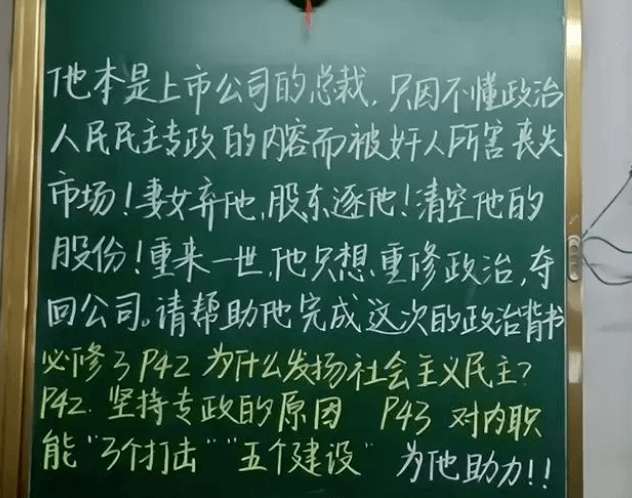 他本是上市公司的总裁，只因不懂政治
人民民主专政的内容而被奸人所害丧失
市场！妻女弃他，股东逐他！清空他的
股份！重来一世，他只想重修政治，夺
回公司。请帮助他完成这次的政治背书
必修3 P42 为什么发扬社会主义民主？
P42. 坚持专政的原因 P43 对内职
能“3个打击”“五个建设” 为他助力！！